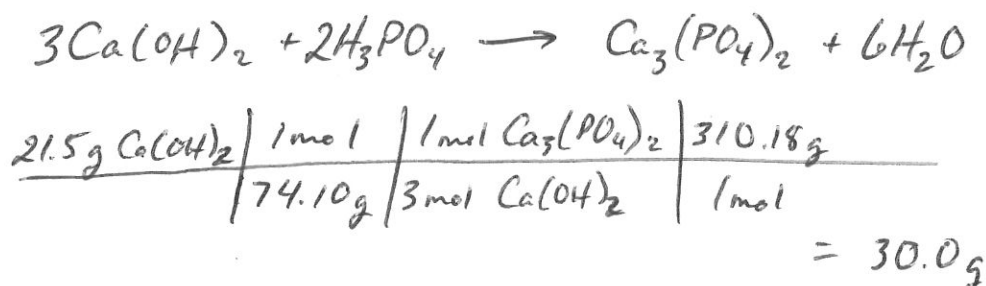 3Ca(OH)₂ + 2H₃PO₄ → Ca₃(PO₄)₂ + 6H₂O
21.5g Ca(OH)₂ | 1mol | 1mol Ca₃(PO₄)₂ | 310.18g
74.10g | 3mol Ca(OH)₂ | 1mol
= 30.0g